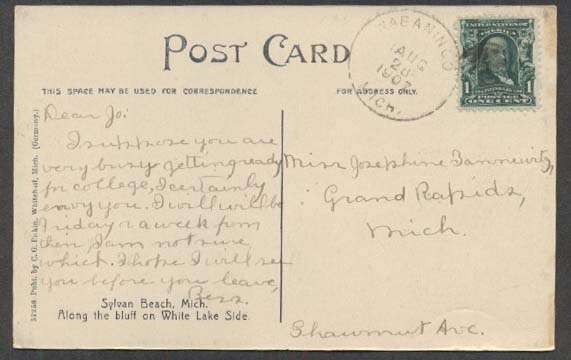 POST CARD
THIS SPACE MAY BE USED FOR CORRESPONDENCE.
FOR ADDRESS ONLY.
AUG
28
1907
MICH.
UNITED STATES OF AMERICA
1 1
POSTAGE
ONE CENT
Dear Jo:
I suppose you are
very busy getting ready
for college, I certainly
envy you. I will
Friday or a week from
then, I am not sure
which. I hope I will see
you before you leave,
Bess.
Miss Josephine
Grand Rapids,
Mich.
Shawmut Ave.
Sylvan Beach, Mich.
Along the bluff on White Lake Side.
Publ. by C. G. Pitkin, Whitehall, Mich. (Germany.)